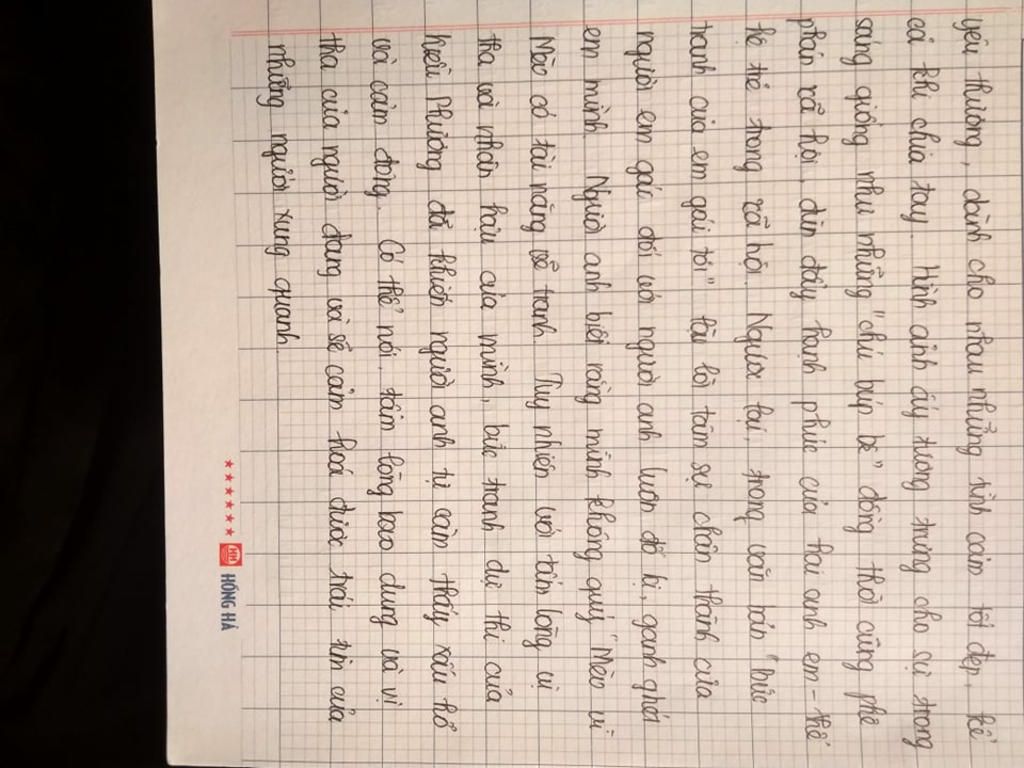 yêu thương, dành cho nhau những tình cảm tốt đẹp, kể
cả khi chia tay. Hình ảnh ấy tượng trưng cho sự trong
sáng giống như những "chú búp bê" đồng thời cũng phê
phán xã hội, dìn đẩy hạnh phúc của hai anh em - thế
hệ trẻ trong xã hội. Ngược lại, trong văn bản "Bức
tranh của em gái tôi" lại là tâm sự chân thành của
người em gái đối với người anh luôn đố kị, ganh ghét
em mình. Người anh biết rằng mình không quý "Mèo" vì
Mèo có tài năng vẽ tranh. Tuy nhiên với tấm lòng vị
tha và nhân hậu của mình, bức tranh dự thi của
Kiều Phương đã khiến người anh tự cảm thấy xấu hổ
và cảm động. Có thể nói, tấm lòng bao dung và vị
tha của người đang và sẽ cảm hoá được trái tim của
những người xung quanh.
HỒNG HÀ